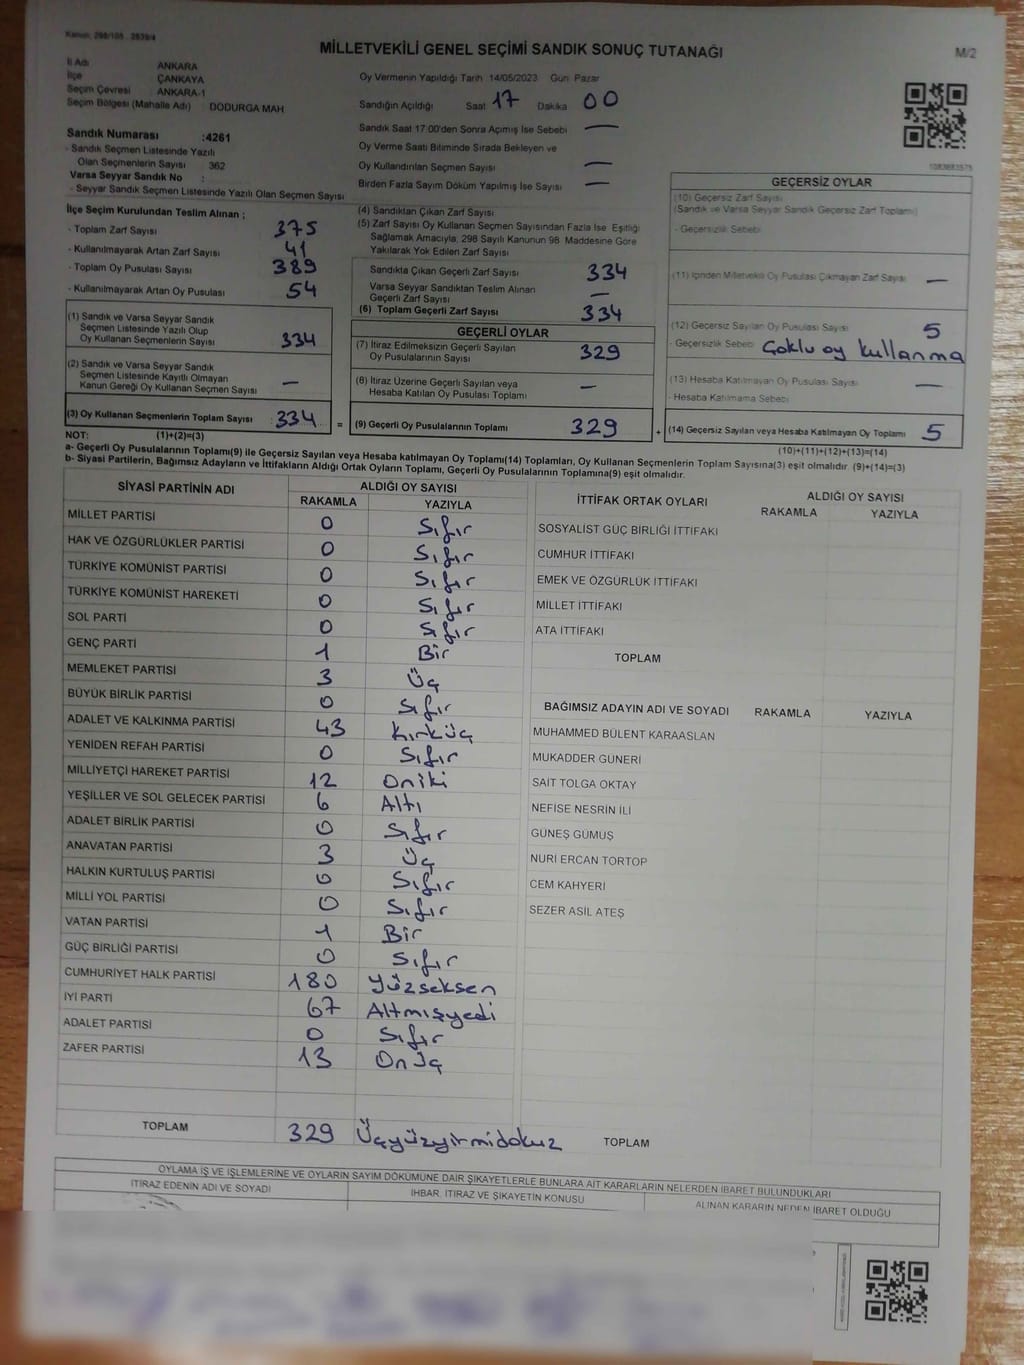 Kanun: 298/105 - 2839/4
MİLLETVEKİLİ GENEL SEÇİMİ SANDIK SONUÇ TUTANAĞI
M/2
İl Adı ANKARA
İlçe ÇANKAYA
Seçim Çevresi ANKARA-1
Seçim Bölgesi (Mahalle Adı) : DODURGA MAH
Sandık Numarası :4261
- Sandık Seçmen Listesinde Yazılı
Olan Seçmenlerin Sayısı 362
Varsa Seyyar Sandık No :
- Seyyar Sandık Seçmen Listesinde Yazılı Olan Seçmen Sayısı
Oy Vermenin Yapıldığı Tarih 14/05/2023 Gün Pazar
Sandığın Açıldığı Saat 17 Dakika 00
Sandık Saat 17:00'den Sonra Açımış İse Sebebi —
Oy Verme Saati Bitiminde Sırada Bekleyen ve
Oy Kullandırılan Seçmen Sayısı —
Birden Fazla Sayım Döküm Yapılmış İse Sayısı —
1083683575
İlçe Seçim Kurulundan Teslim Alınan ;
- Toplam Zarf Sayısı 375
- Kullanılmayarak Artan Zarf Sayısı 41
- Toplam Oy Pusulası Sayısı 389
- Kullanılmayarak Artan Oy Pusulası 54
(1) Sandık ve Varsa Seyyar Sandık
Seçmen Listesinde Yazılı Olup
Oy Kullanan Seçmenlerin Sayısı 334
(2) Sandık ve Varsa Seyyar Sandık
Seçmen Listesinde Kayıtlı Olmayan
Kanun Gereği Oy Kullanan Seçmen Sayısı —
(3) Oy Kullanan Seçmenlerin Toplam Sayısı : 334 =
(4) Sandıktan Çıkan Zarf Sayısı
(5) Zarf Sayısı Oy Kullanan Seçmen Sayısından Fazla İse Eşitliği
Sağlamak Amacıyla, 298 Sayılı Kanunun 98 Maddesine Göre
Yakılarak Yok Edilen Zarf Sayısı
Sandıkta Çıkan Geçerli Zarf Sayısı 334
Varsa Seyyar Sandıktan Teslim Alınan
Geçerli Zarf Sayısı —
(6) Toplam Geçerli Zarf Sayısı 334
GEÇERLİ OYLAR
(7) İtiraz Edilmeksizin Geçerli Sayılan
Oy Pusulalarının Sayısı 329
(8) İtiraz Üzerine Geçerli Sayılan veya
Hesaba Katılan Oy Pusulası Toplamı —
(9) Geçerli Oy Pusulalarının Toplamı 329 +
GEÇERSİZ OYLAR
(10) Geçersiz Zarf Sayısı
(Sandık ve Varsa Seyyar Sandık Geçersiz Zarf Toplamı)
- Geçersizlik Sebebi
(11) İçinden Milletvekili Oy Pusulası Çıkmayan Zarf Sayısı —
(12) Geçersiz Sayılan Oy Pusulası Sayısı 5
- Geçersizlik Sebebi Çoklu oy kullanma
(13) Hesaba Katılmayan Oy Pusulası Sayısı —
- Hesaba Katılmama Sebebi
(14) Geçersiz Sayılan veya Hesaba Katılmayan Oy Toplamı 5
NOT: (1)+(2)=(3)
(10)+(11)+(12)+(13)=(14)
a- Geçerli Oy Pusulalarının Toplamı(9) ile Geçersiz Sayılan veya Hesaba katılmayan Oy Toplamı(14) Toplamları, Oy Kullanan Seçmenlerin Toplam Sayısına(3) eşit olmalıdır (9)+(14)=(3)
b- Siyasi Partilerin, Bağımsız Adayların ve İttifakların Aldığı Ortak Oyların Toplamı, Geçerli Oy Pusulalarının Toplamına(9) eşit olmalıdır.
SİYASİ PARTİNİN ADI ALDIĞI OY SAYISI
RAKAMLA YAZIYLA
MİLLET PARTİSİ 0 Sıfır
HAK VE ÖZGÜRLÜKLER PARTİSİ 0 Sıfır
TÜRKİYE KOMÜNİST PARTİSİ 0 Sıfır
TÜRKİYE KOMÜNİST HAREKETİ 0 Sıfır
SOL PARTİ 0 Sıfır
GENÇ PARTİ 1 Bir
MEMLEKET PARTİSİ 3 Üç
BÜYÜK BİRLİK PARTİSİ 0 Sıfır
ADALET VE KALKINMA PARTİSİ 43 Kırküç
YENİDEN REFAH PARTİSİ 0 Sıfır
MİLLİYETÇİ HAREKET PARTİSİ 12 Oniki
YEŞİLLER VE SOL GELECEK PARTİSİ 6 Altı
ADALET BİRLİK PARTİSİ 0 Sıfır
ANAVATAN PARTİSİ 3 Üç
HALKIN KURTULUŞ PARTİSİ 0 Sıfır
MİLLİ YOL PARTİSİ 0 Sıfır
VATAN PARTİSİ 1 Bir
GÜÇ BİRLİĞİ PARTİSİ 0 Sıfır
CUMHURİYET HALK PARTİSİ 180 Yüzseksen
İYİ PARTİ 67 Altmışyedi
ADALET PARTİSİ 0 Sıfır
ZAFER PARTİSİ 13 Onüç
TOPLAM 329 Üçyüzyirmidokuz
İTTİFAK ORTAK OYLARI ALDIĞI OY SAYISI
RAKAMLA YAZIYLA
SOSYALİST GÜÇ BİRLİĞİ İTTİFAKI
CUMHUR İTTİFAKI
EMEK VE ÖZGÜRLÜK İTTİFAKI
MİLLET İTTİFAKI
ATA İTTİFAKI
TOPLAM
BAĞIMSIZ ADAYIN ADI VE SOYADI RAKAMLA YAZIYLA
MUHAMMED BÜLENT KARAASLAN
MUKADDER GÜNERİ
SAİT TOLGA OKTAY
NEFİSE NESRİN İLİ
GÜNEŞ GÜMÜŞ
NURİ ERCAN TORTOP
CEM KAHYERİ
SEZER ASİL ATEŞ
TOPLAM
OYLAMA İŞ VE İŞLEMLERİNE VE OYLARIN SAYIM DÖKÜMÜNE DAİR ŞİKAYETLERLE BUNLARA AİT KARARLARIN NELERDEN İBARET BULUNDUKLARI
İTİRAZ EDENİN ADI VE SOYADI İHBAR, İTİRAZ VE ŞİKAYETİN KONUSU ALINAN KARARIN NEDEN İBARET OLDUĞU